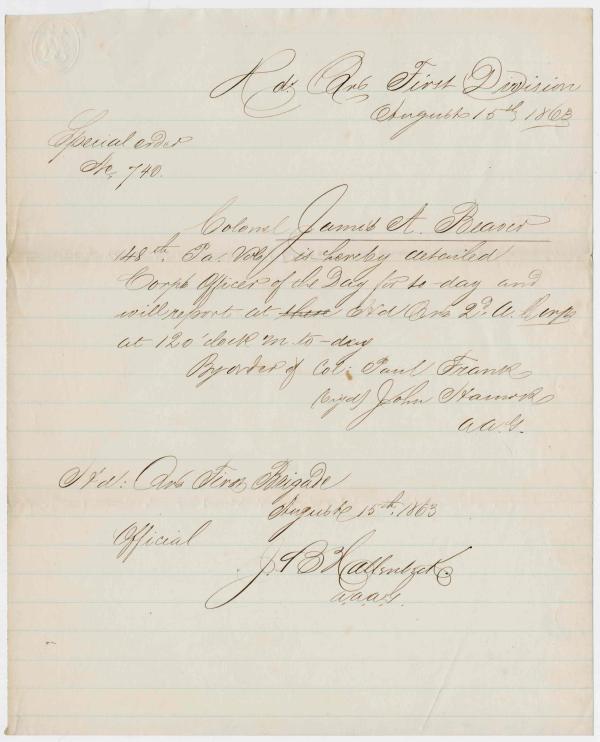 Hd. Qrs First Division
August 15th, 1863
Special order
No, 740.
Colonel James A. Beaver
148th. Pa. Vols is hereby detailed
Corps Officer of the Day for to-day and
will report at Hd Qrs 2d. A. Corps
at 12 o'clock m to-day
By order of Col: Paul Frank
(sigd) John Hancock
a.a.G.
Hd: Qrs First Brigade
August 15th, 1863
Official
J. B Hallenbeck.
a.a.a.G.